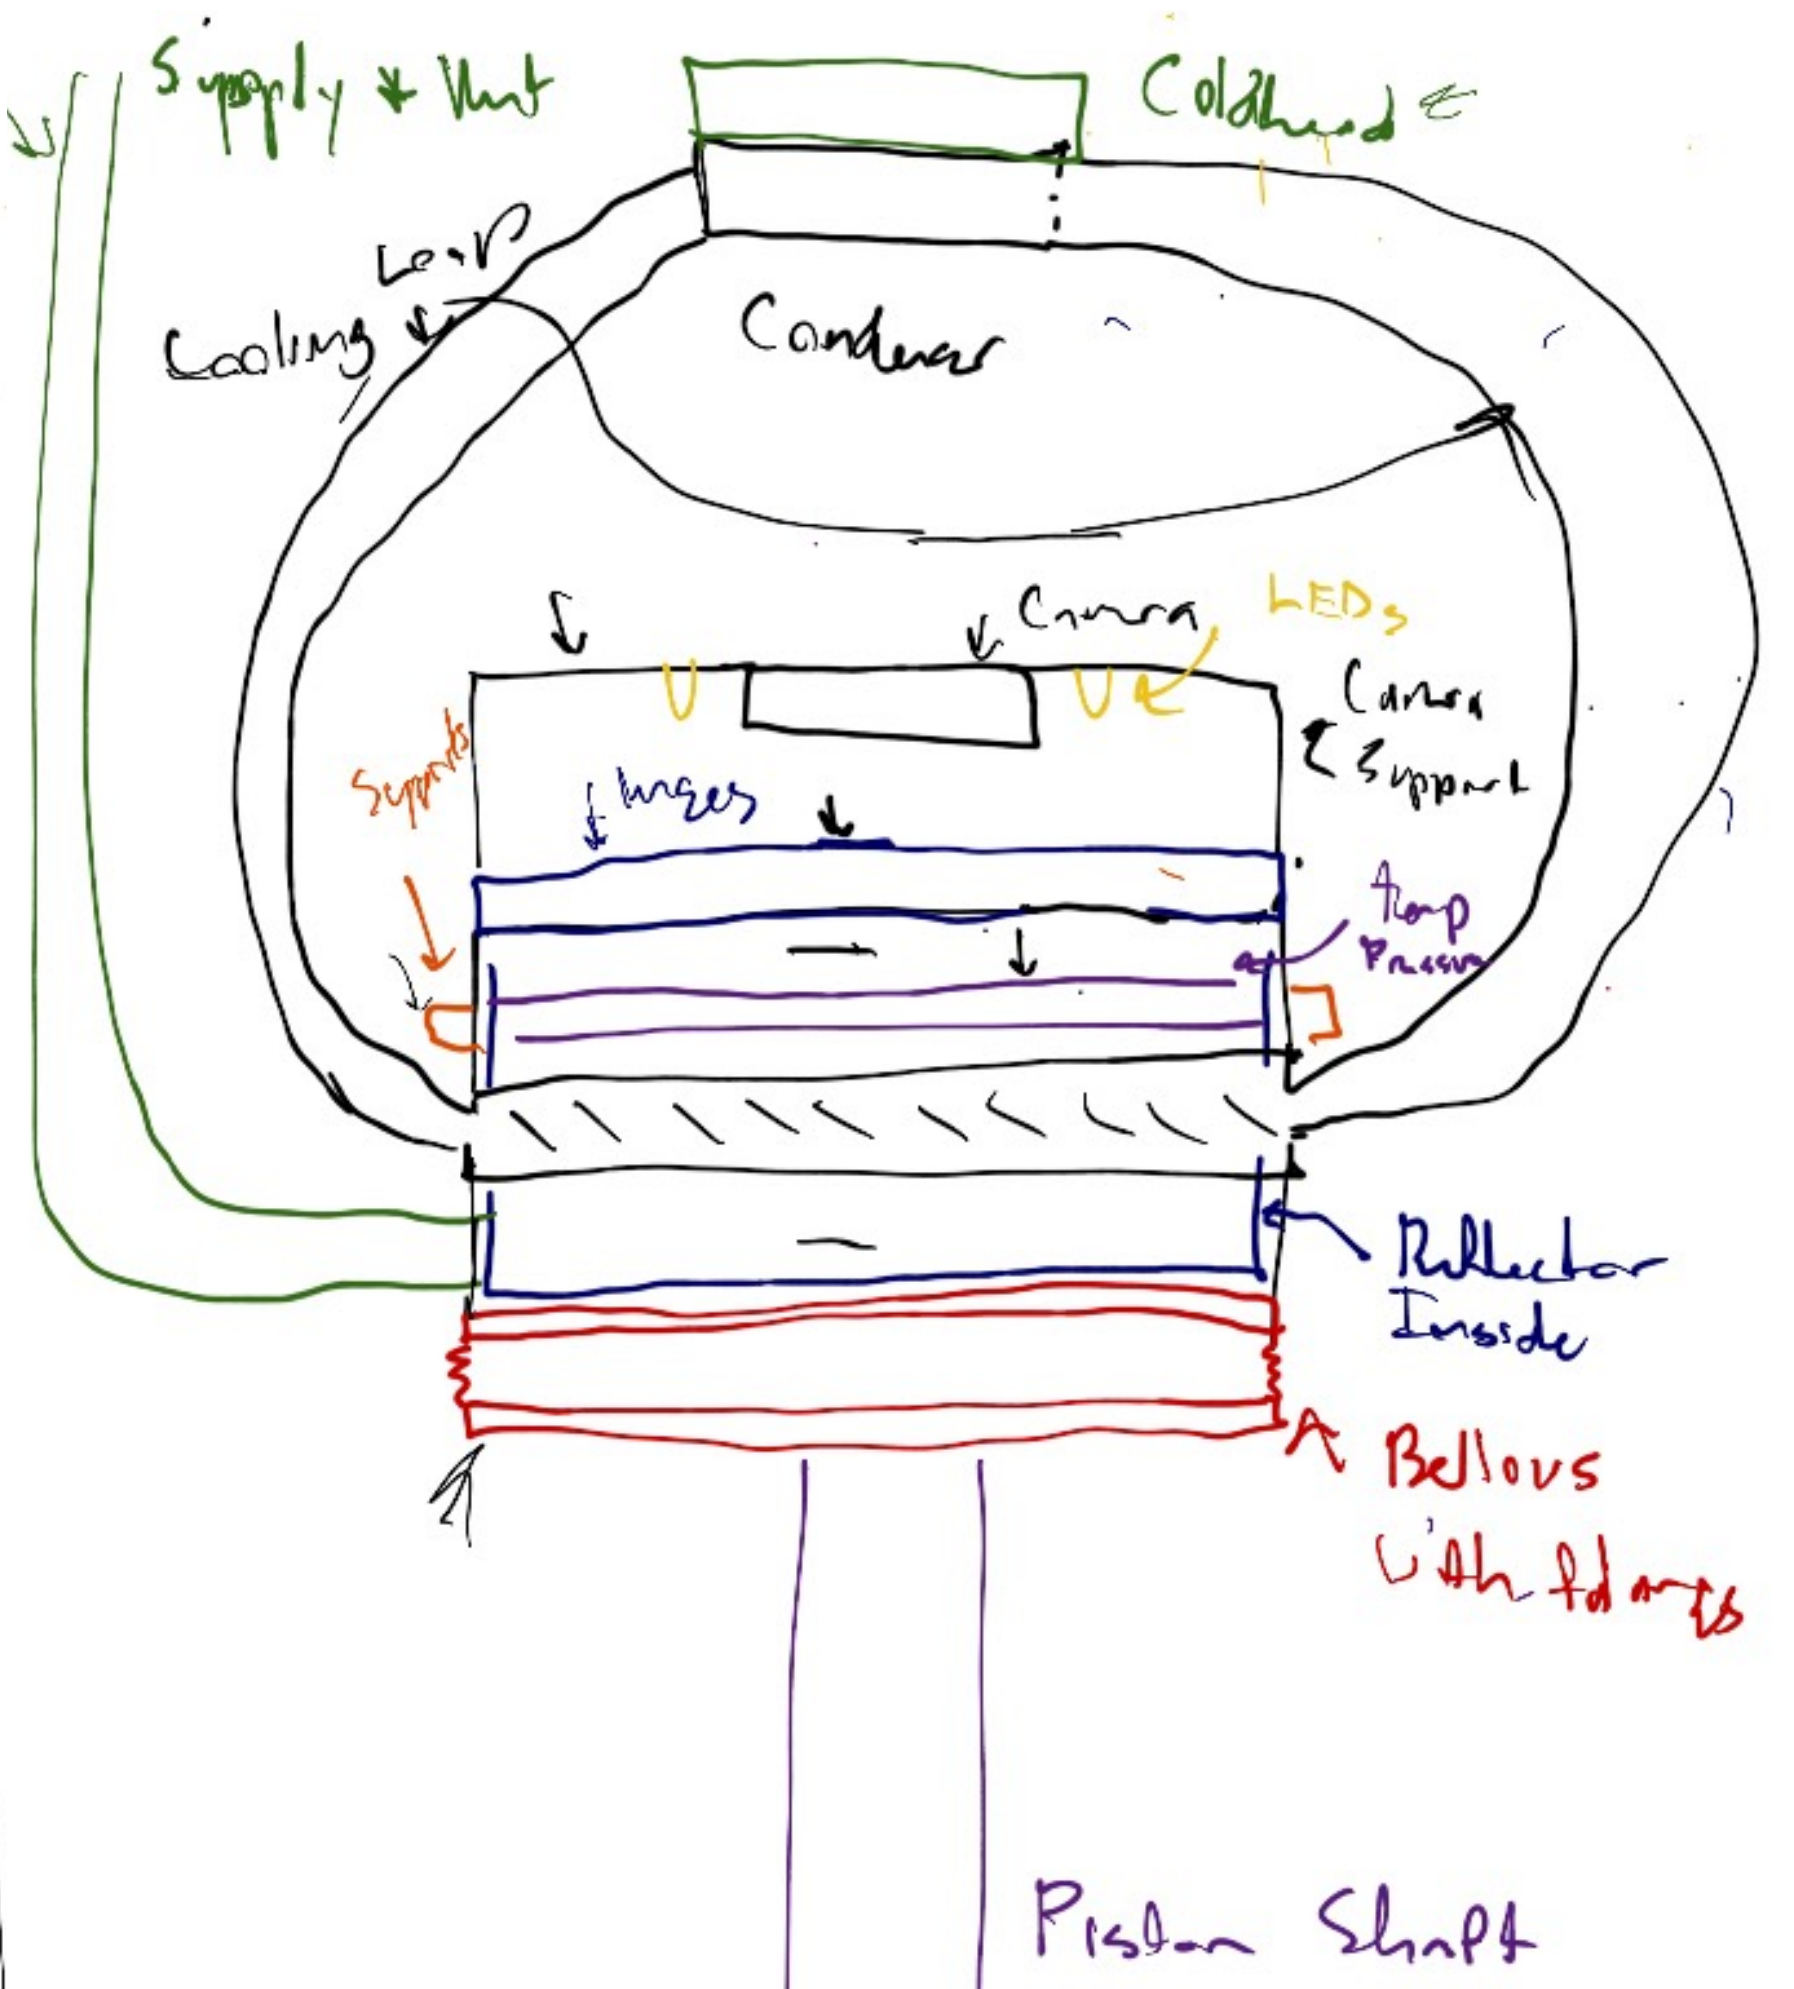 Supply & Vent
Coldhead
Loop
Cooling
Condenser
LEDs
Camera
Camera
Support
Supports
Temp
Pressure
Reflector
Inside
Bellows
with flanges
Piston Shaft